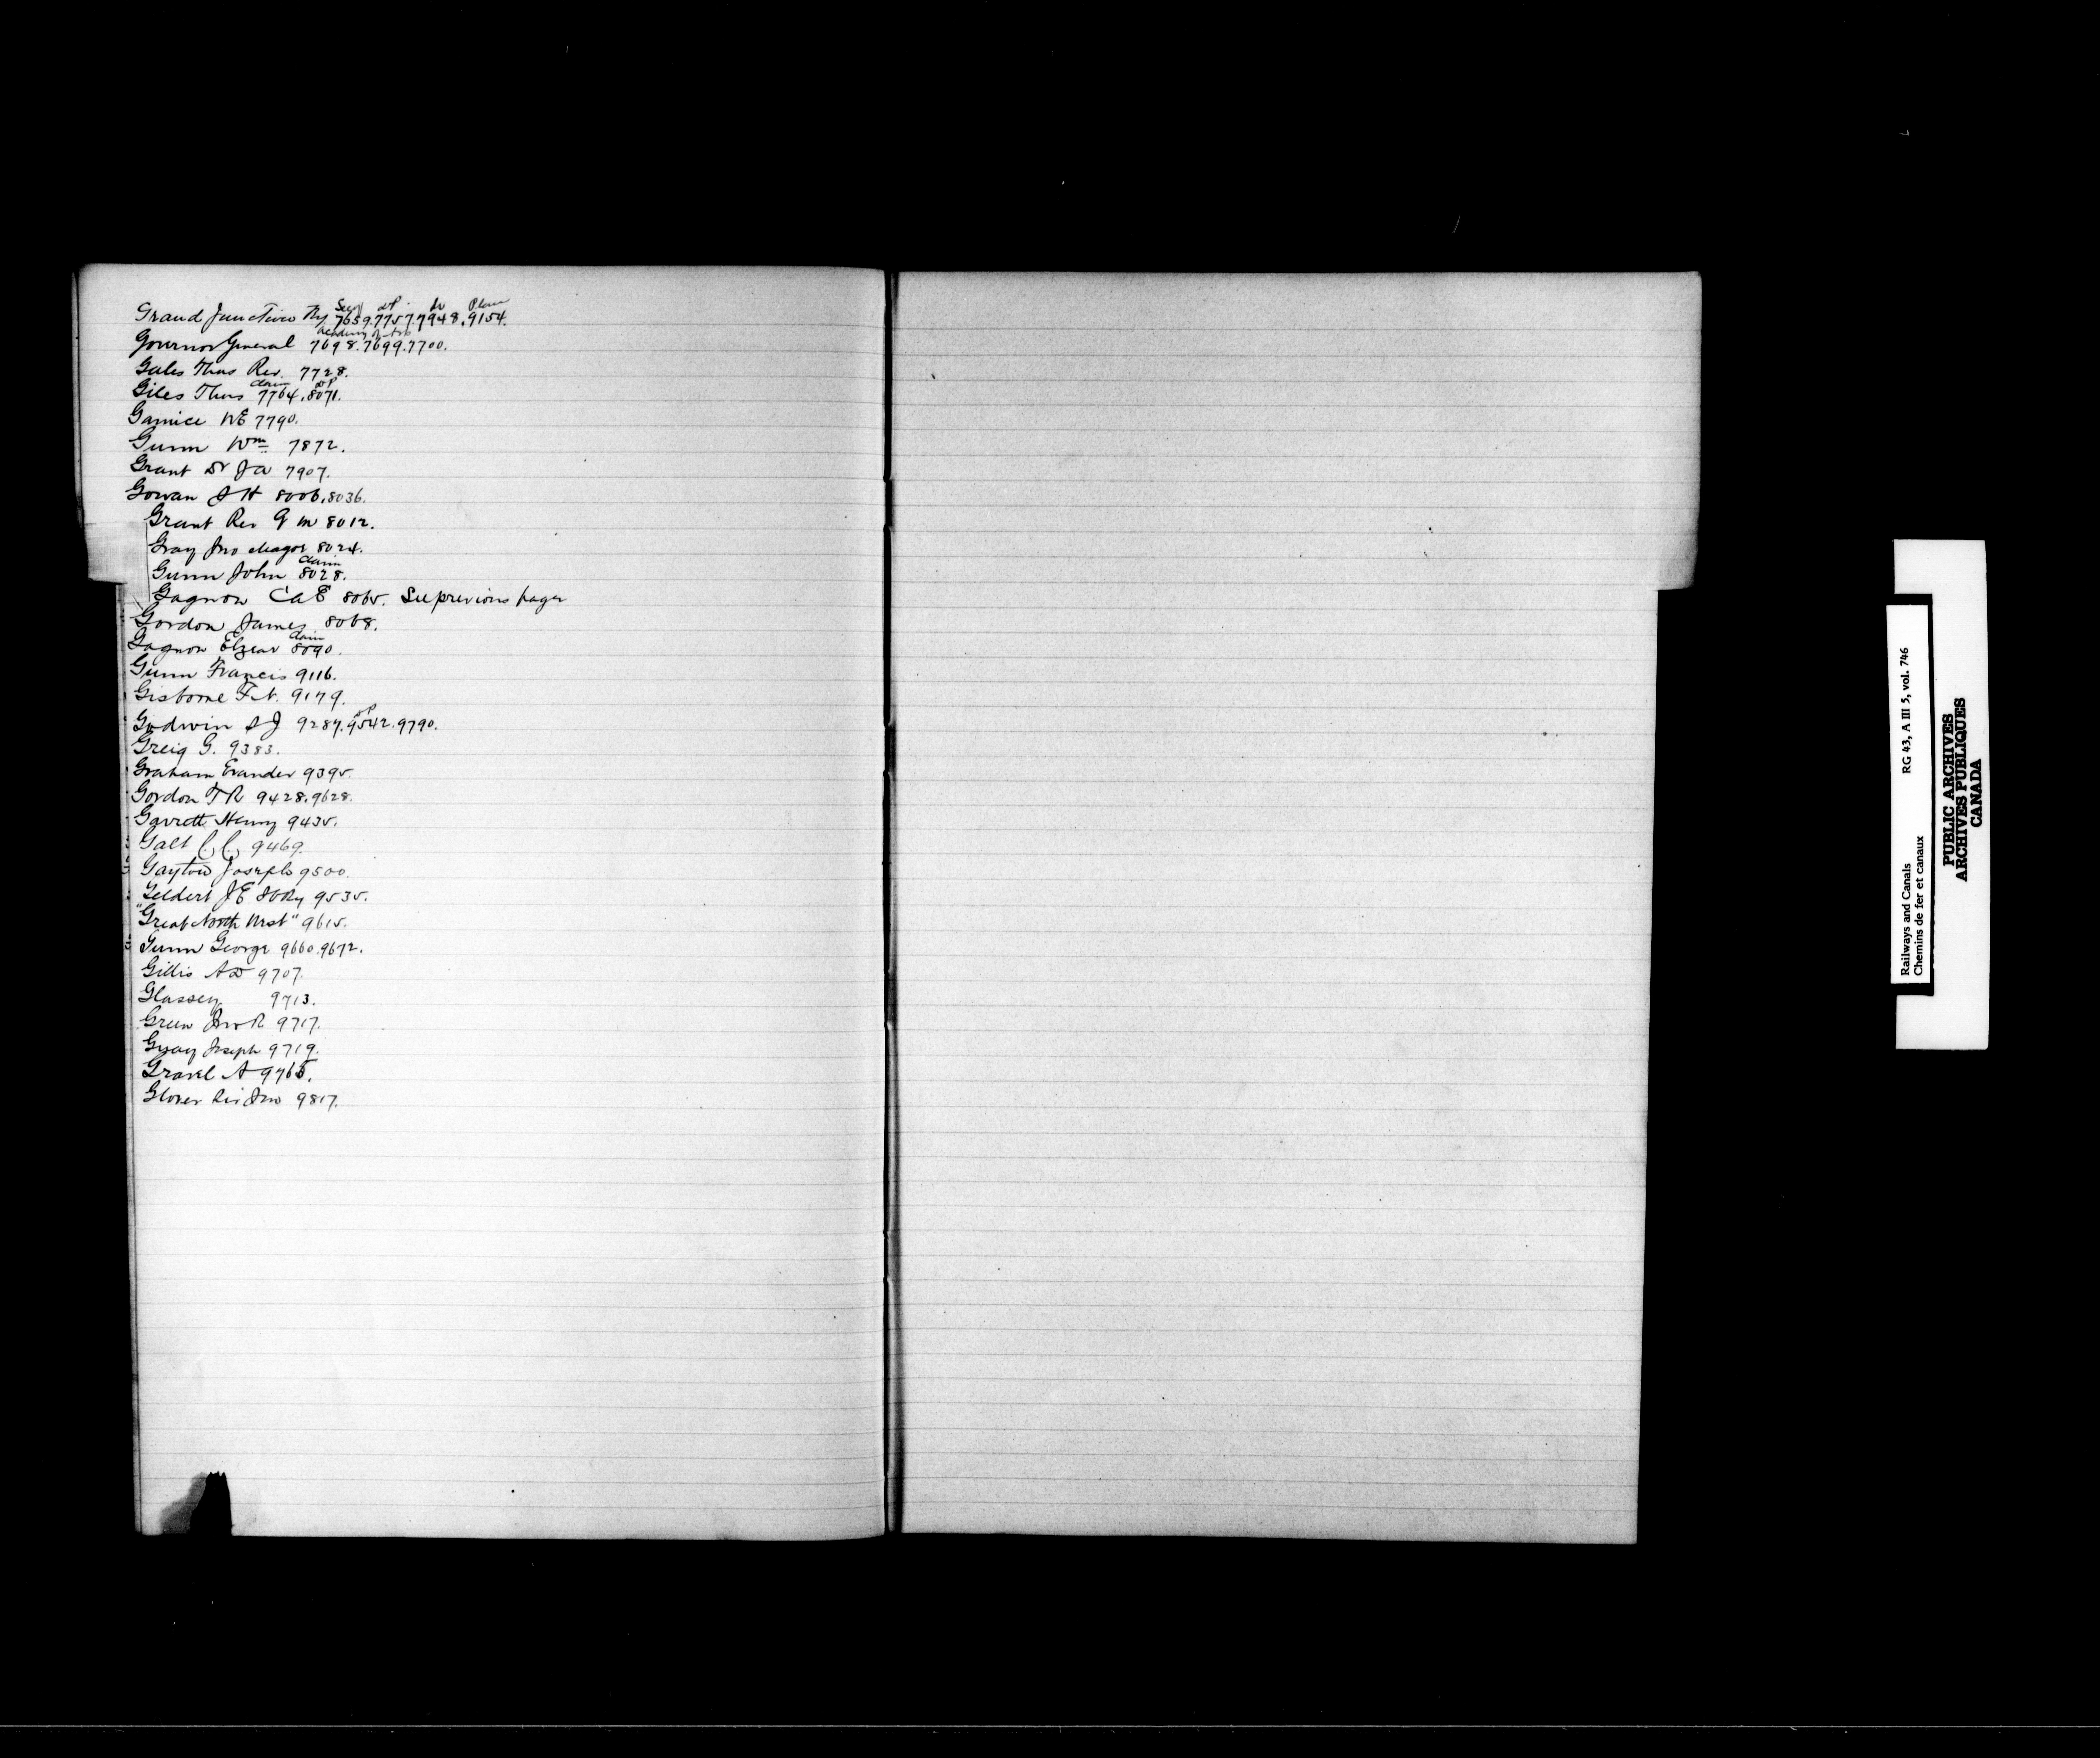 Grand Junction Ry 7659. 7757. 7948. 9154.
Governor General 7698. 7699. 7700.
Gales Thos Rev. 7728.
Giles Thos claim 7764. 8071.
Garnice WE 7790.
Gunn Wm 7872.
Grant Dr JA 7907.
Gowan S H 8006. 8036.
Grant Rev G M 8012.
Gray Jno Major 8024.
Gunn John claim 8028.
Gagnon C A E 8065. See previous page
Gordon James 8068.
Gagnon Elzear claim 8090.
Gunn Francis 9116.
Gisborne F.N. 9179.
Godwin S J 9287. 9542. 9790.
Greig G. 9383.
Graham Evander 9395.
Gordon T R 9428. 9628.
Garrett Henry 9435.
Galt 9469.
Gayton Joseph 9500.
Geldert J E 9535.
"Great North West" 9615.
Gunn George 9660. 9672.
Gillis A D 9707.
Glassey 9713.
Green Jno R 9717.
Guay Joseph 9719.
Gravel A 9765.
Glover Jno 9817.
Railways and Canals RG 43, A III 5, vol. 746
Chemins de fer et canaux
PUBLIC ARCHIVES
ARCHIVES PUBLIQUES
CANADA